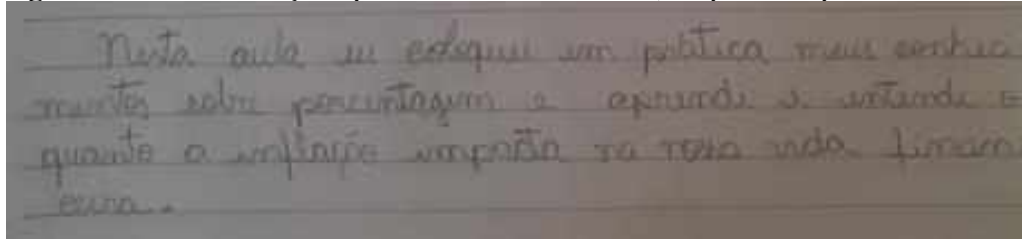 Nesta aula eu coloquei em prática meus conheci
mentos sobre porcentagem e aprendi e entendi o
quanto a inflação impacta na nossa vida finan
ceira.